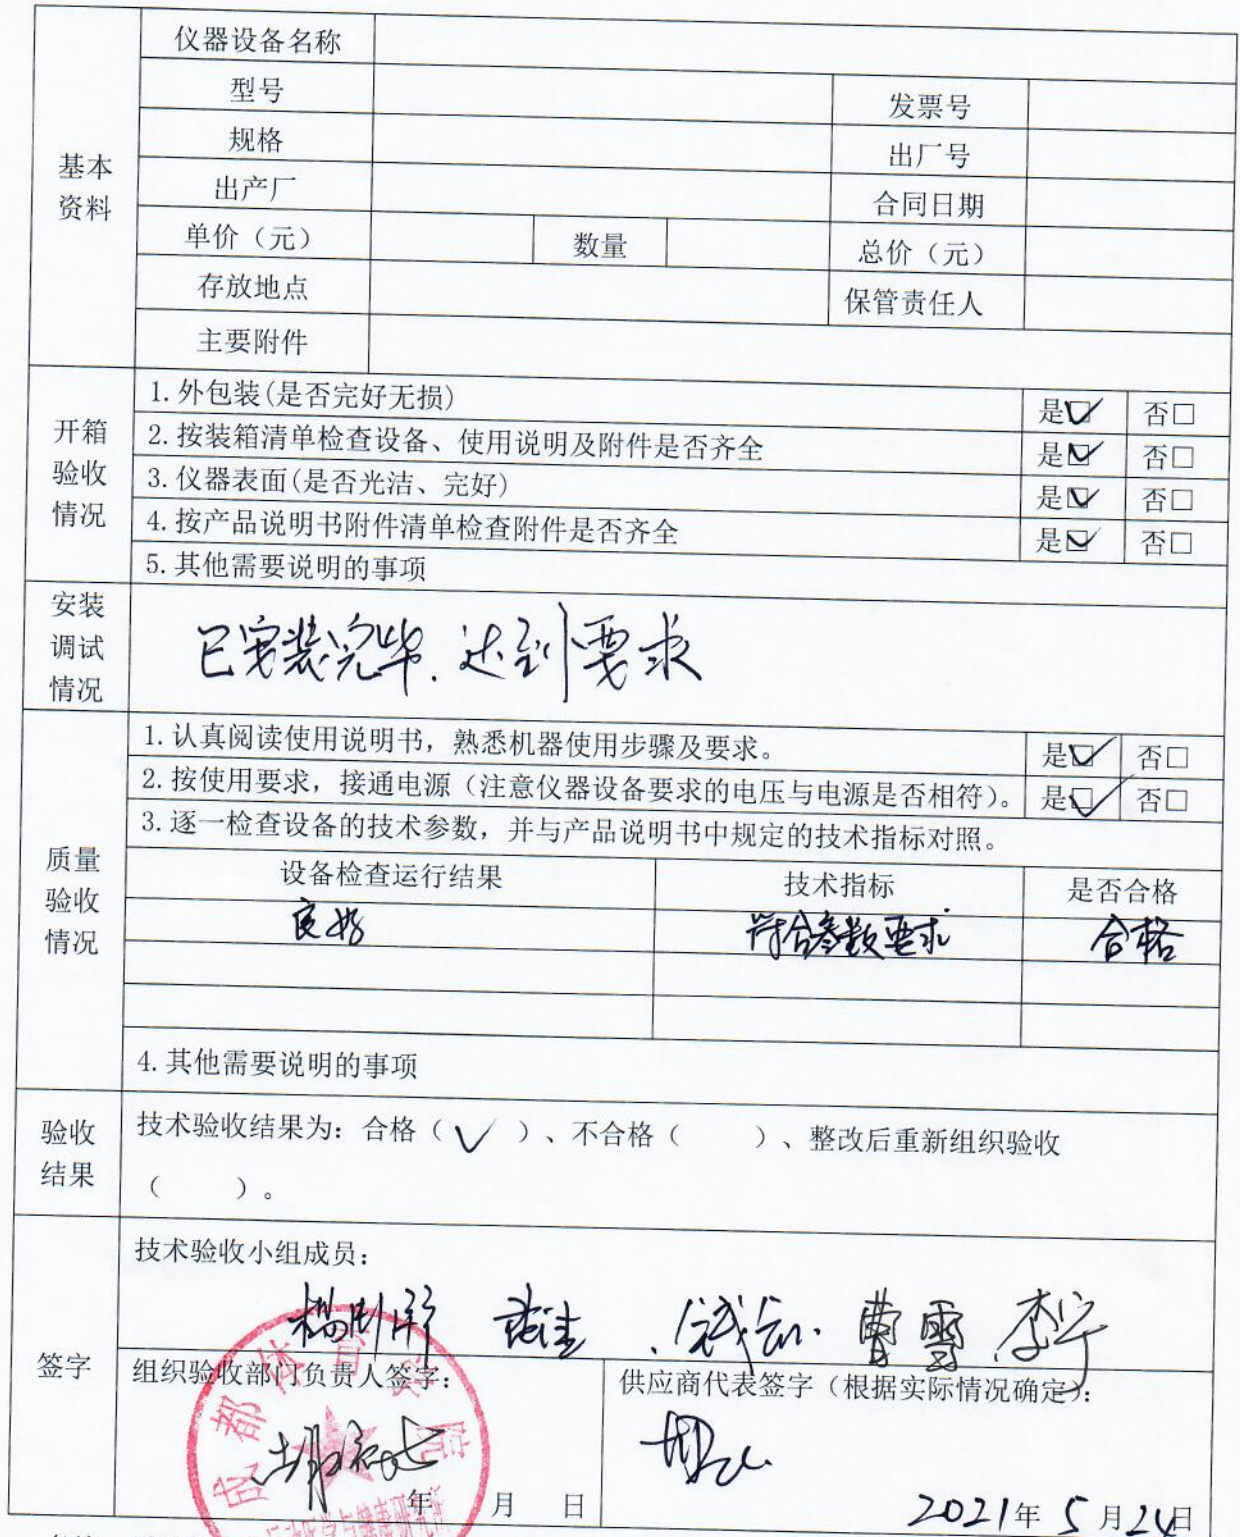 基本资料
仪器设备名称
型号 发票号
规格 出厂号
出产厂 合同日期
单价（元） 数量 总价（元）
存放地点 保管责任人
主要附件
开箱验收情况
1.外包装(是否完好无损) 是☑ 否□
2.按装箱清单检查设备、使用说明及附件是否齐全 是☑ 否□
3.仪器表面(是否光洁、完好) 是☑ 否□
4.按产品说明书附件清单检查附件是否齐全 是☑ 否□
5.其他需要说明的事项
安装调试情况
已安装完毕.达到要求
质量验收情况
1.认真阅读使用说明书，熟悉机器使用步骤及要求。 是☑ 否□
2.按使用要求，接通电源（注意仪器设备要求的电压与电源是否相符）。 是☑ 否□
3.逐一检查设备的技术参数，并与产品说明书中规定的技术指标对照。
设备检查运行结果 技术指标 是否合格
良好 符合参数要求 合格
4.其他需要说明的事项
验收结果
技术验收结果为：合格（✓）、不合格（ ）、整改后重新组织验收
（ ）。
签字
技术验收小组成员：
曹雪 李宁
组织验收部门负责人签字： 供应商代表签字（根据实际情况确定）：
成都体育学院
年 月 日 2021年5月24日